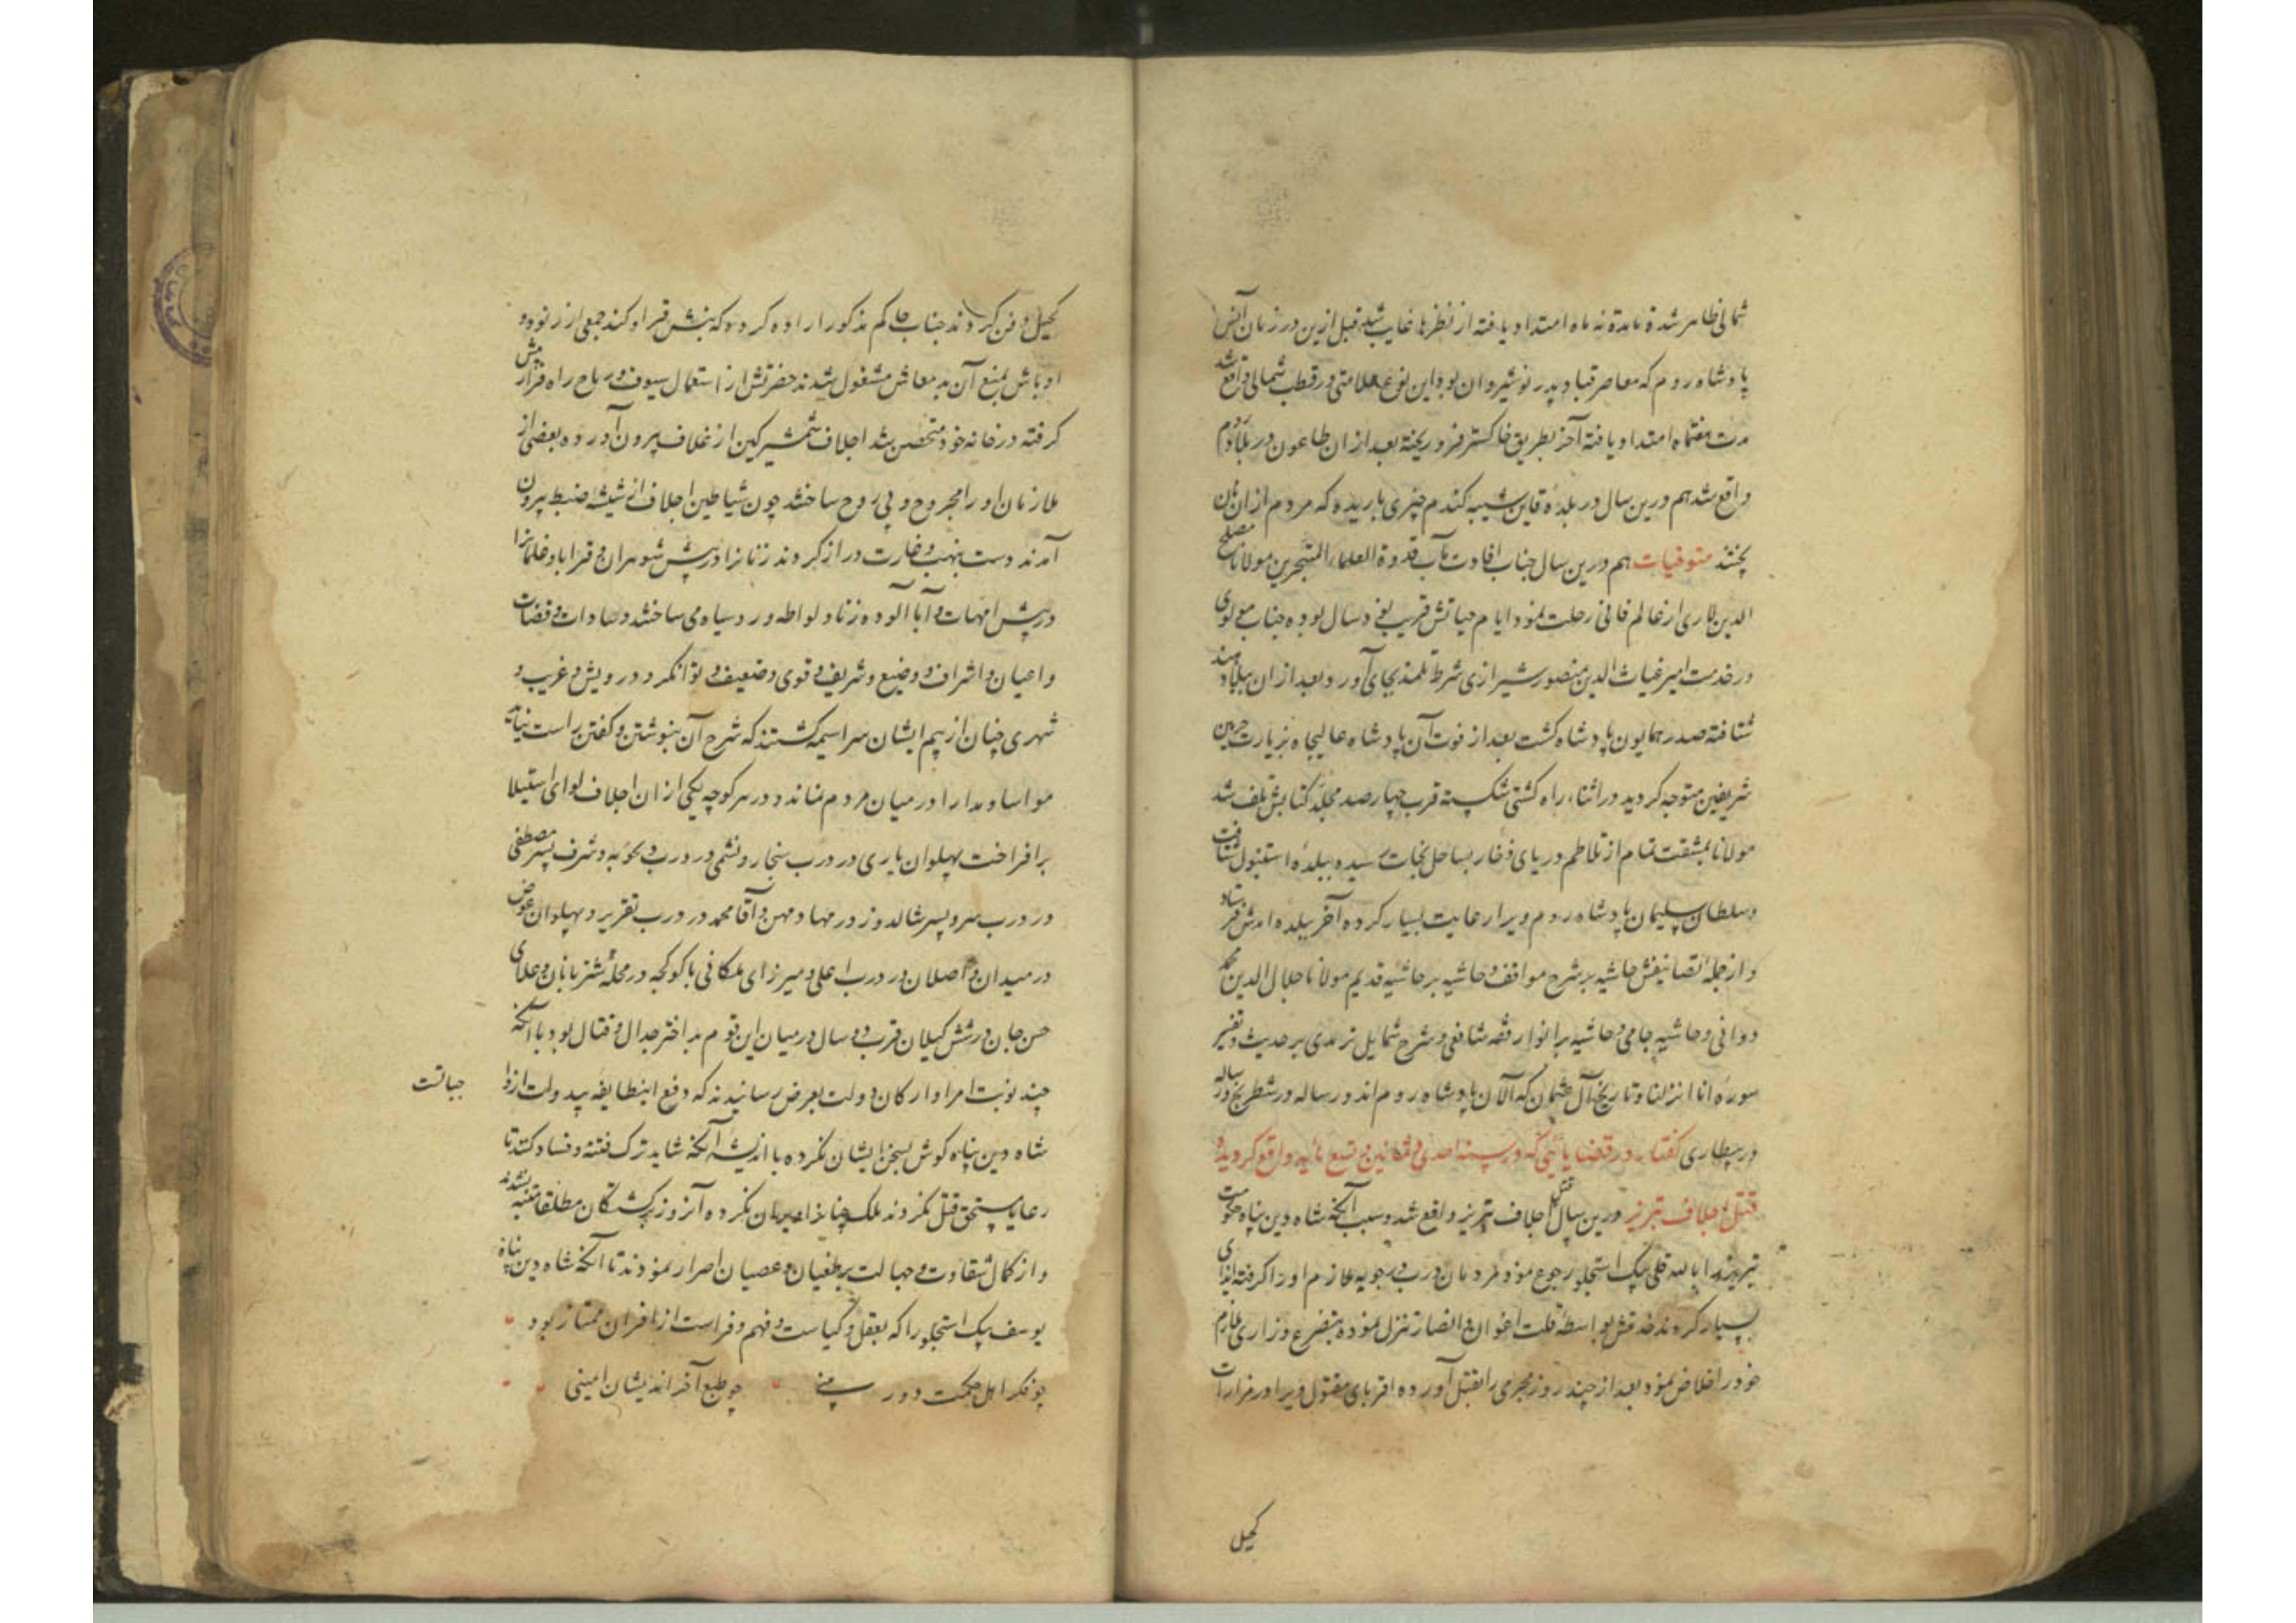 شمالی ظاهر شده تا مدة نه ماه امتداد یافته از نظرها غایب شد قبل ازین در زمان
پادشاه روم که معاصر قباد پدر نوشیروان بود این نوع علامتی در قطب شمالی واقع شد
مدت هفتماه امتداد یافته آخر بطریق خاکستر فرو ریخته بعد از ان طاعون در بلاد روم
واقع شد هم درین سال در بلدهٔ قاین شبیه کندم چیزی باریده که مردم از ان نان
پختند متوفیات هم درین سال جناب افادت مآب قدوة العلماء المتبحرین مولانا مصلح
الدین لاری از عالم فانی رحلت نمود ایام حیاتش قریب بغ دسال بوده جناب مولوی
در خدمت امیر غیاث الدین منصور شیرازی شرط تلمذ بجای آورد و بعد از ان ببلاد هند
شتافته صدر همایون پادشاه کشت بعد از فوت آن پادشاه عالیجاه بزیارت حرمین
شریفین متوجه کردید در اثناء راه کشتی شکسته قرب چهارصد مجلد کتابش تلف شد
مولانا بمشقت تمام از تلاطم دریای ذخار بساحل نجات رسیده ببلدهٔ استنبول شتافت
و سلطان سلیمان پادشاه روم ویرا رعایت بسیار کرده آخر ببلده امدش فرستاد
و از جملهٔ تصانیفش حاشیه بر شرح مواقف و حاشیه بر حاشیه قدیم مولانا جلال الدین محمد
دوانی و حاشیه جامی و حاشیه بر انوار فقه شافعی و شرح شمایل ترمدی بر حدیث و تفسیر
سوره انا انزلنا و تاریخ آل عثمان که الآن پادشاه روم اند و رساله در شطرنج و رساله
در بیطاری کفتار در قضایائی که در سنه احدی و ثمانین و تسع مائه واقع کردیده
قتل اجلاف تبریز درین سال قتل اجلاف تبریز واقع شد و سبب آنکه شاه دین پناه حکومت
تبریز را بالله قلی بیک استجلو رجوع نمود مردمان درب ویجویه ملازم او را کرفته ایذای
بسیار کردند خدمتش بواسطه قلت اعوان و انصار تنزل نموده بتضرع و زاری ملازم
خود را خلاص نمود بعد از چند روز مجرمی را بقتل آورده اقربای مقتول ویرا در مزارات
کجیل
کجیل دفن کردند جناب حاکم مذکور اراده کرده که بنبش قبر او کند جمعی از رنود و
اوباش بمنع آن بد معاش مشغول شدند حضرتش از استعمال سیوف و رماح راه فرار پیش
کرفته در خانه خود متحصن شد اجلاف شمشیر کین از غلاف بیرون آورده بعضی از
ملازمان او را مجروح و بی روح ساختند چون شیاطین اجلاف از شیشه ضبط بیرون
آمدند دست بنهب و غارت دراز کردند زنانرا در پیش شوهران و قرابا و غلمانرا
در پیش امهات و آبا آلوده زنا و لواطه و رو سیاه می ساختند و سادات و قضات
و اعیان و اشراف و وضیع و شریف و قوی و ضعیف و توانکر و درویش و غریب و
شهری چنان از بیم ایشان سراسیمه کشتند که شرح آن بنوشتن و کفتن راست نیاید
مواسا و مدارا در میان مردم نماند و در هر کوچه یکی از ان اجلاف لوای استیلا
برافراخت پهلوان یاری در درب سنجار و نشمی در درب ویجویه و شرف پسر مصطفی
در درب سرو و پسر شالدوز در مهادمهین و آقا محمد در درب و پهلوان عوض
در میدان و اصلان در درب اعلی و میرزای ملکانی با کوکجه در محلهٔ شتربانان و علای
حسن جان در شش کیلان قرب دو سال در میان این قوم بد اختر جدال و قتال بود با آنکه
چند نوبت امرا و ارکان دولت بعرض رسانیدند که دفع اینطایفه بیدولت از واجباتست
شاه دین پناه کوش بسخن ایشان نکرده با اندیشه آنکه شاید ترک فتنه و فساد کنند تا
رعایا مستحق قتل نکردند آنروز برکشتکان مطلقا متنبه نشدند
و از کمال شقاوت و جهالت بر طغیان و عصیان اصرار نمودند تا آنکه شاه دین پناه
یوسف بیک استجلو را که بعقل و کیاست و فهم و فراست از اقران ممتاز بود
چو فکر اهل حکمت دور بینی چو طبع آخر اندیشان امینی